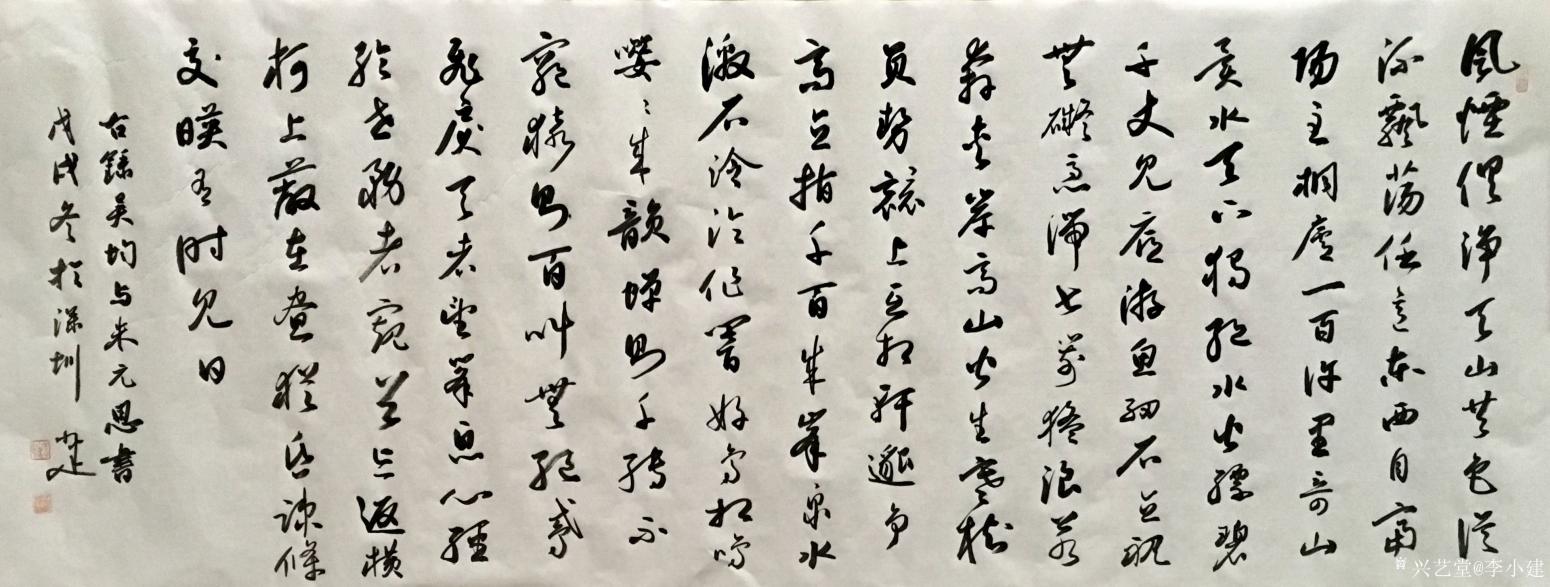 風煙俱淨天山共色從
流飄蕩任意東西自富
陽至桐廬一百許里奇山
異水天下獨絕水皆縹碧
千丈見底游魚細石直視
無礙急湍甚箭猛浪若
奔夾岸高山皆生寒樹
負勢競上互相軒邈爭
高直指千百成峯泉水
激石泠泠作響好鳥相鳴
嚶〻成韻蟬則千轉不
窮猿則百叫無絕鳶
飛戾天者望峯息心經
綸世務者窺谷忘返橫
柯上蔽在晝猶昏疎條
交暎有時見日
右錄吳均与朱元思書
戊戌冬於深圳 小建
兴艺堂@李小建